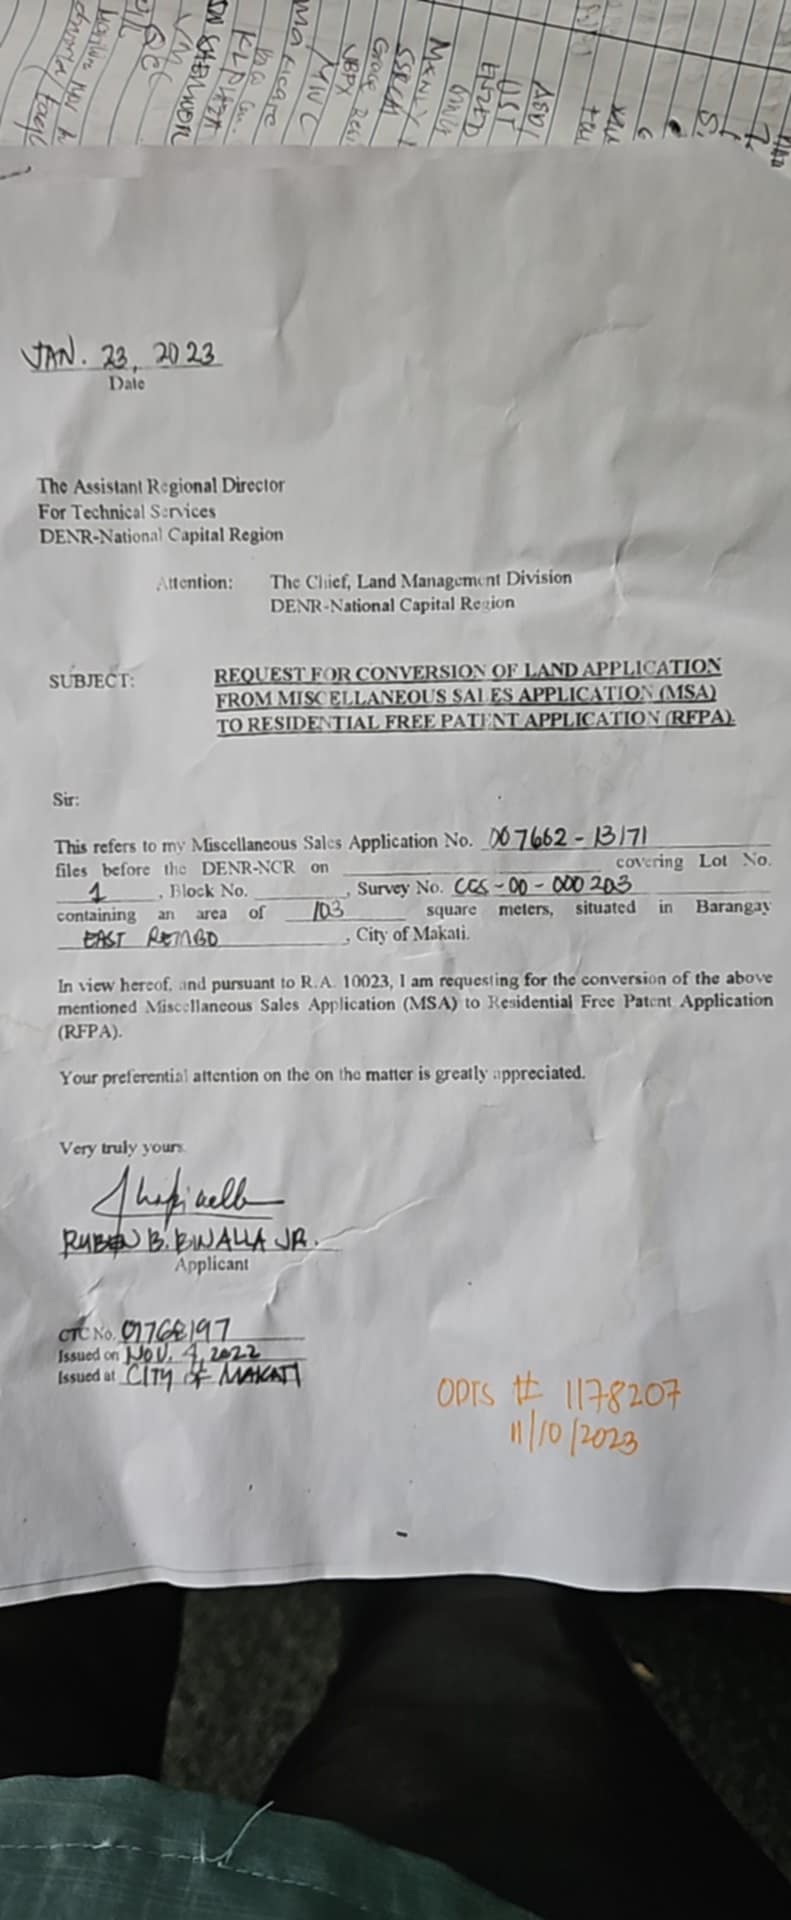 JAN. 23, 2023
Date
The Assistant Regional Director
For Technical Services
DENR-National Capital Region
Attention: The Chief, Land Management Division
DENR-National Capital Region
SUBJECT: REQUEST FOR CONVERSION OF LAND APPLICATION
FROM MISCELLANEOUS SALES APPLICATION (MSA)
TO RESIDENTIAL FREE PATENT APPLICATION (RFPA).
Sir:
This refers to my Miscellaneous Sales Application No. 007662-13171
files before the DENR-NCR on covering Lot No.
1, Block No. , Survey No. CCS-00-000203
containing an area of 103 square meters, situated in Barangay
EAST REMBO, City of Makati.
In view hereof, and pursuant to R.A. 10023, I am requesting for the conversion of the above
mentioned Miscellaneous Sales Application (MSA) to Residential Free Patent Application
(RFPA).
Your preferential attention on the on the matter is greatly appreciated.
Very truly yours,
RUBEN B. BINALLA JR.
Applicant
CTC No. 01768197
Issued on NOV. 4, 2022
Issued at CITY OF MAKATI
ODTS # 1178207
11/10/2023